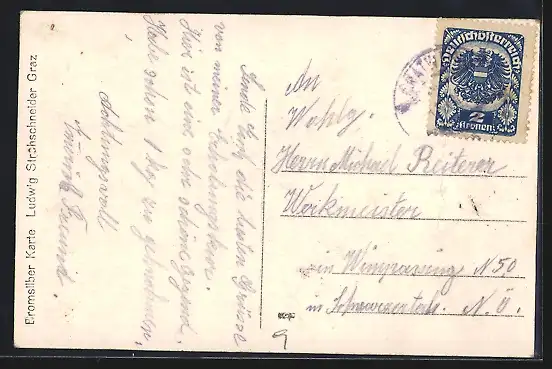 Sende Euch die besten Grüsse
von meiner Erholungskur.
Hier ist eine sehr schöne Gegend.
Habe schon 1 Kg zugenommen.
Achtungsvoll
Freund.
An
Wohlg.
Herrn Michael Reiterer
Werkmeister
in Wimpassing N 50
in Schwarzatal. N. Ö.
Deutschösterreich
2
Kronen
Bromsilber Karte Ludwig Strohschneider Graz